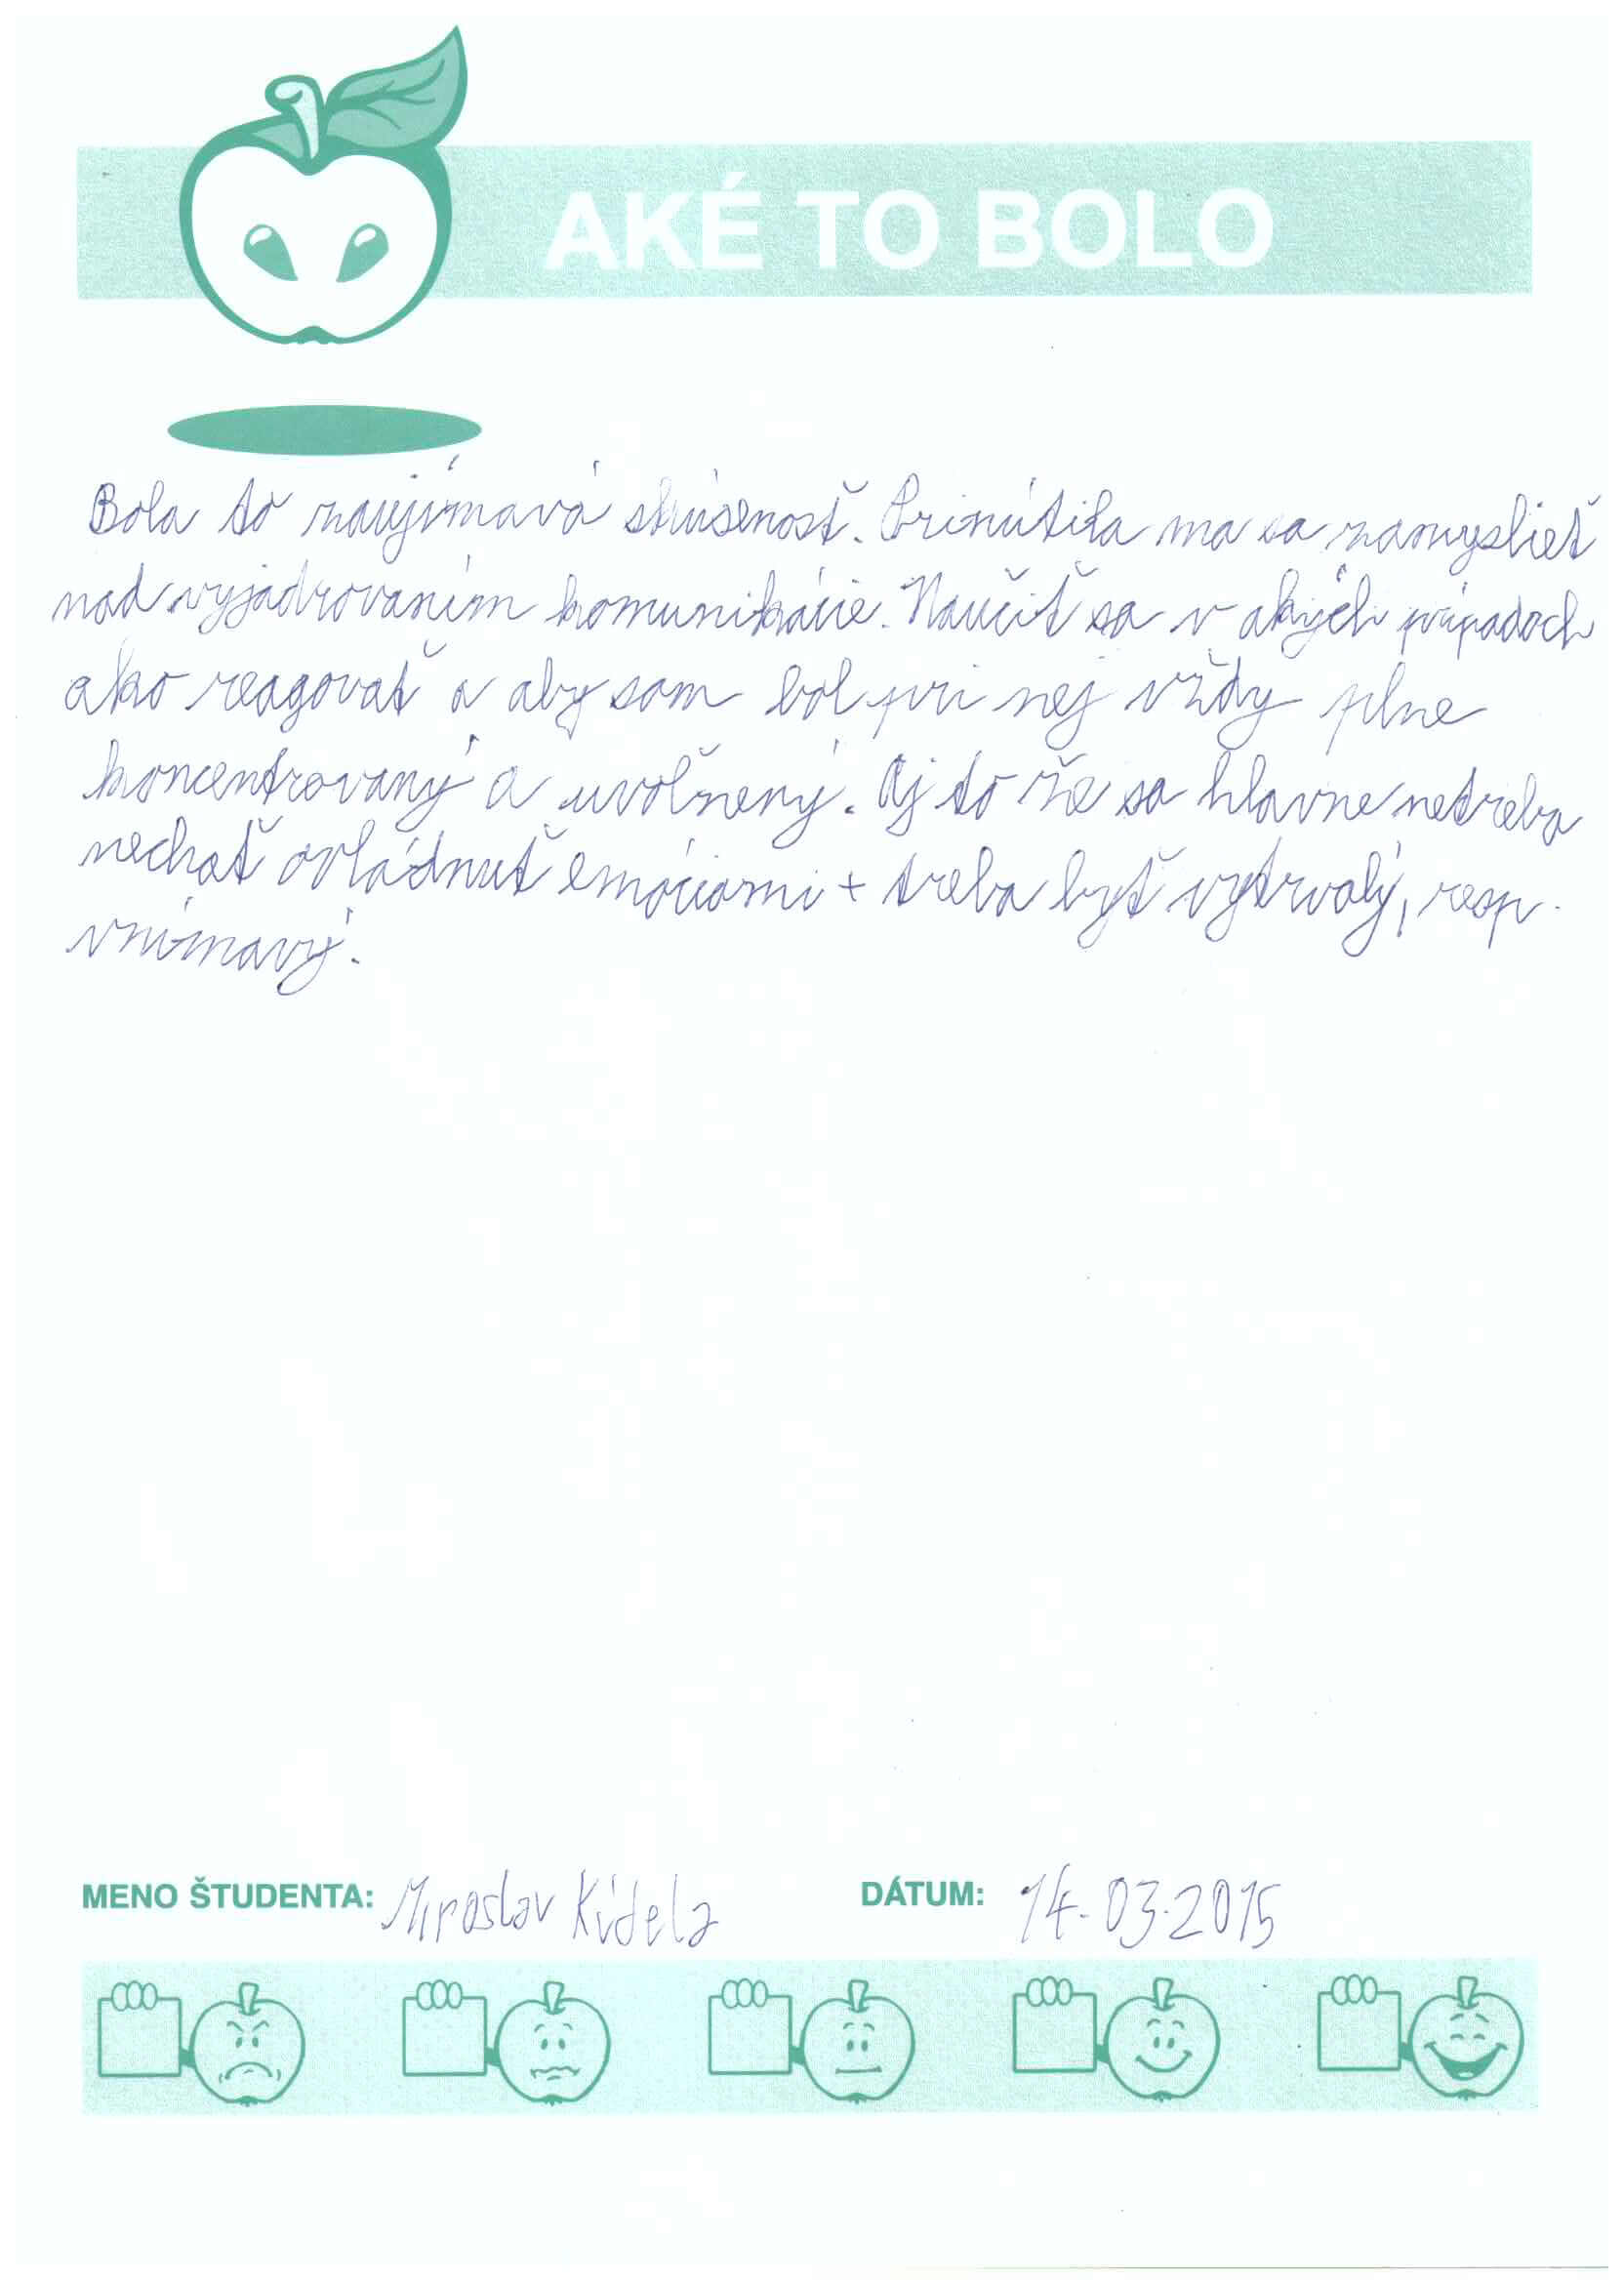 AKÉ TO BOLO
Bola to zaujímavá skúsenosť. Prinútila ma sa zamyslieť
nad vyjadrovaním komunikácie. Naučiť sa v akých prípadoch
ako reagovať a aby som bol pri nej vždy plne
koncentrovaný a uvoľnený. Aj to že sa hlavne netreba
nechať ovládnuť emóciami + treba byť vytrvalý, resp.
vnímavý.
MENO ŠTUDENTA: Miroslav Kidela DÁTUM: 14.03.2015